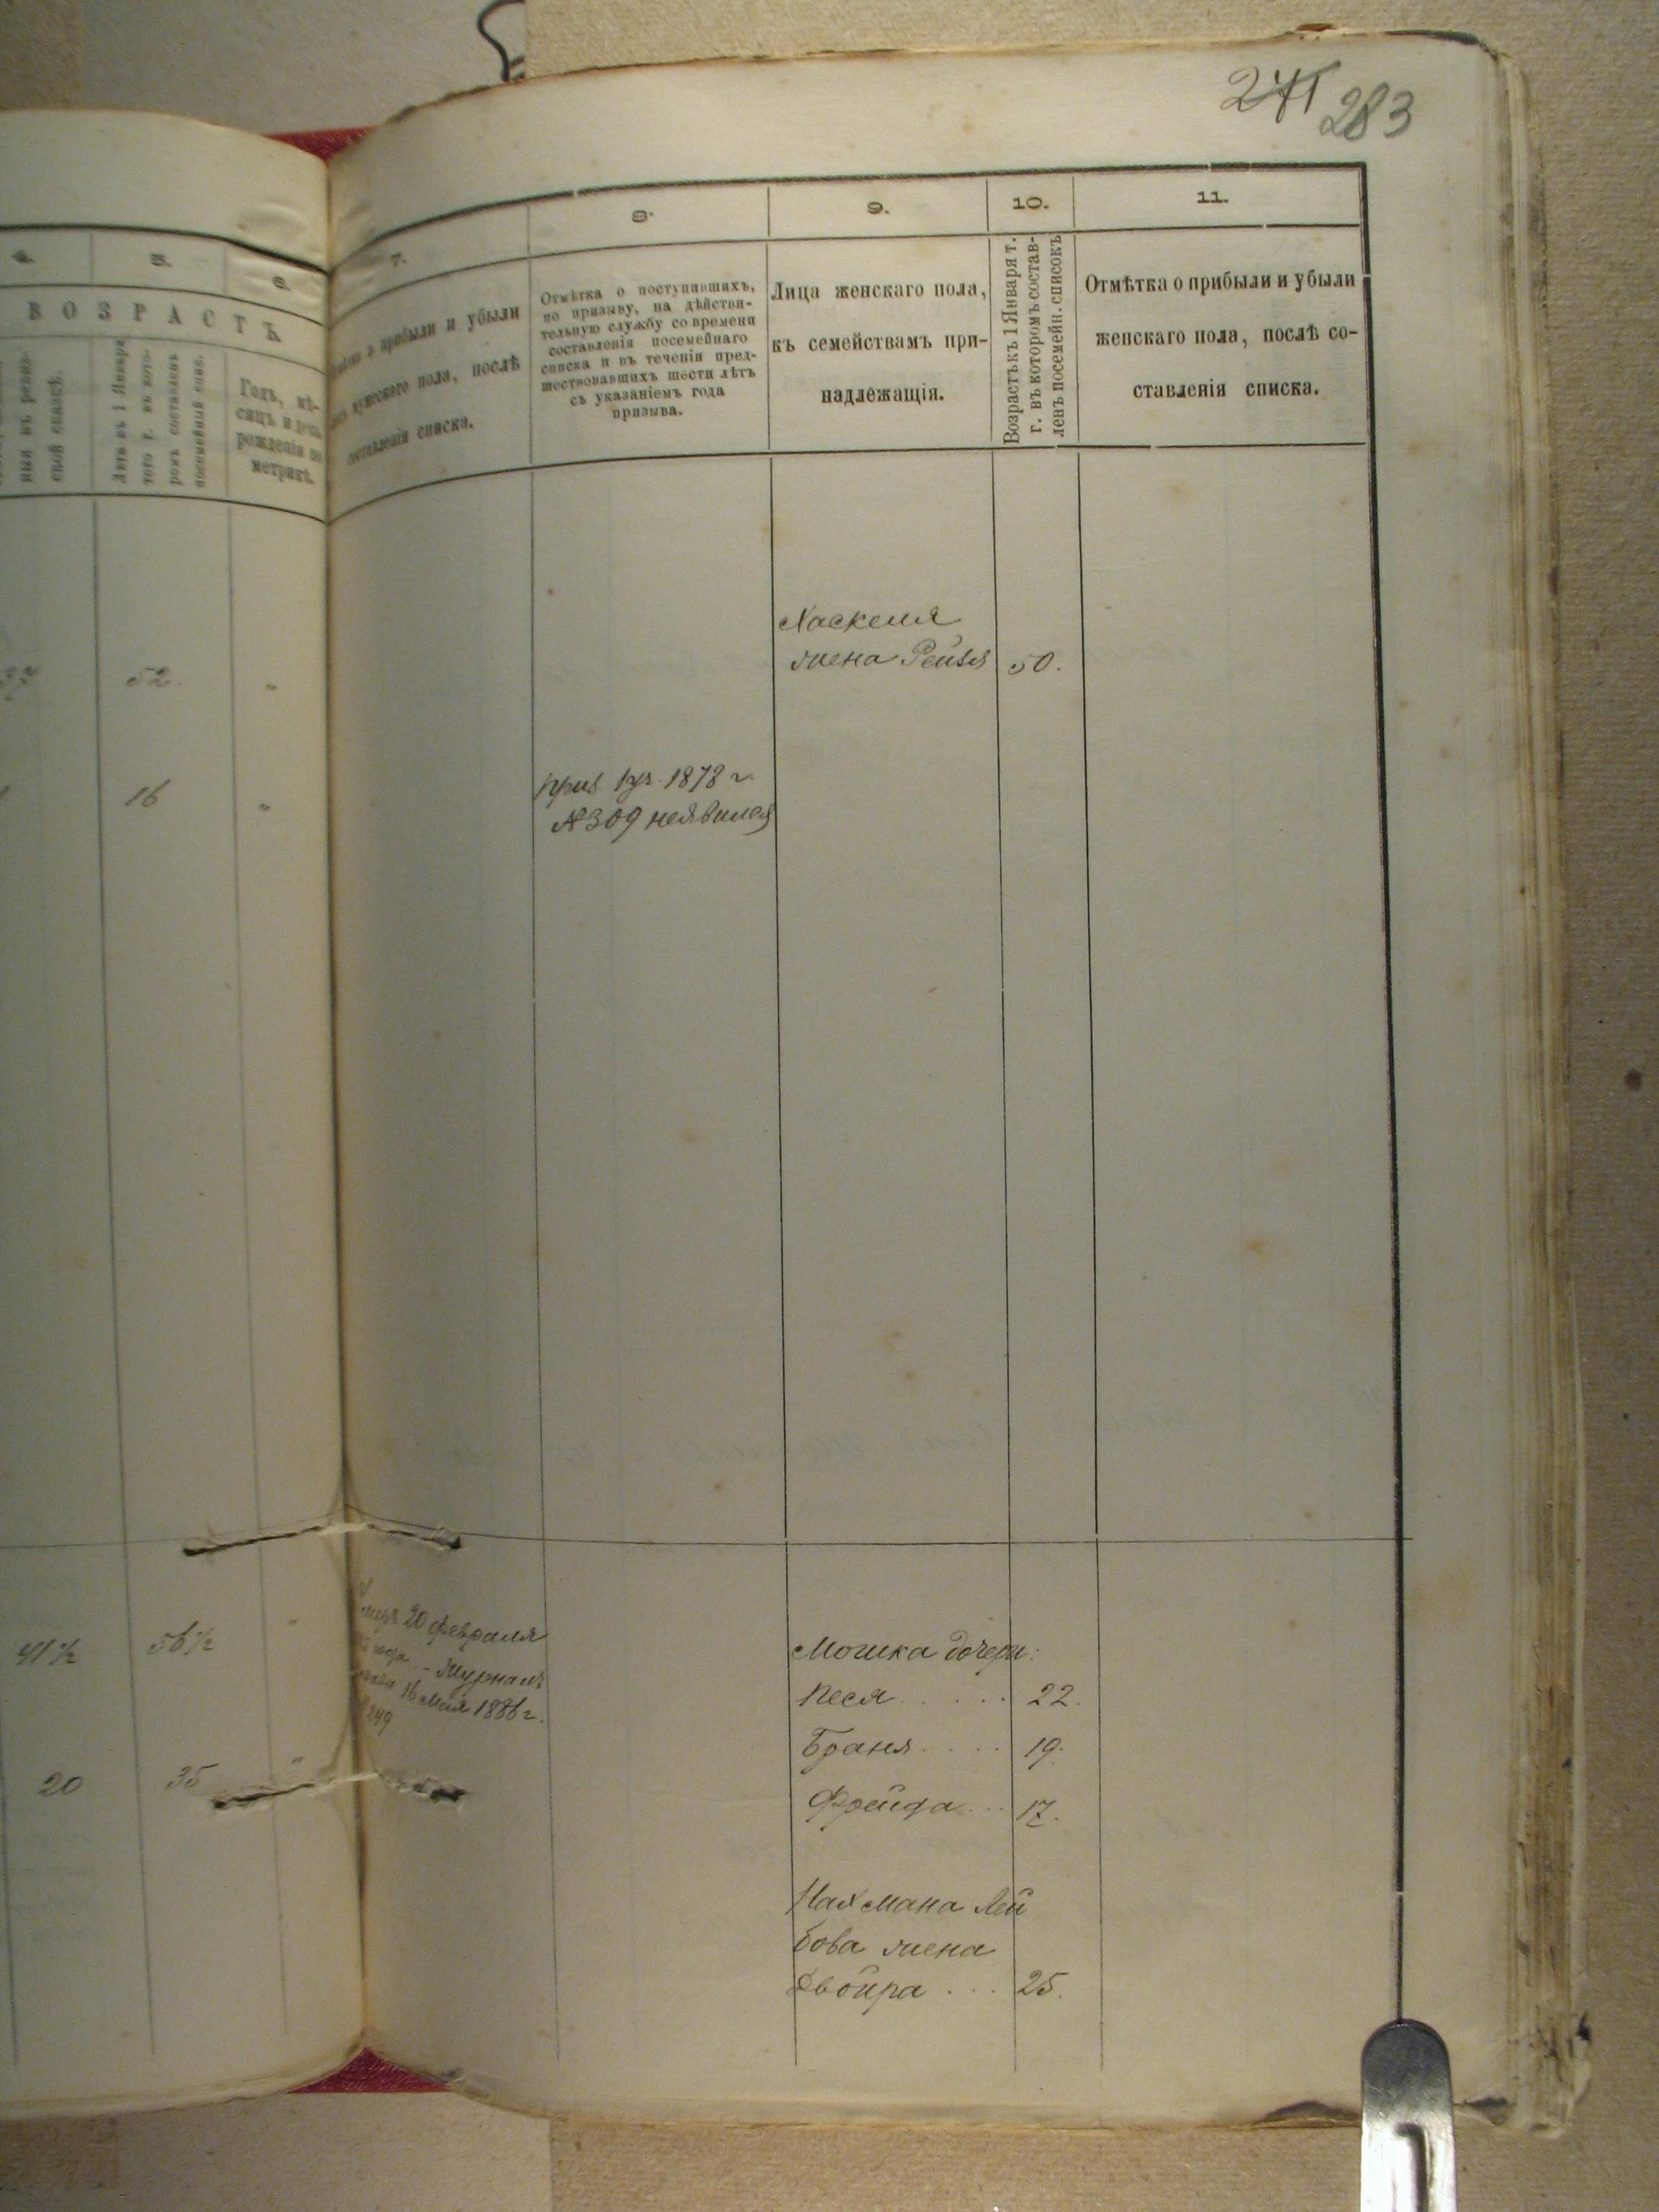 271 283
4. 5. 6.
ВОЗРАСТЪ
Лѣта къ 1 Января
Годъ, мѣ-
сяцъ и день
рожденія по
метрикѣ.
52
16
41½ 56½
20 35
7. 8. 9. 10. 11.
о прибыли и убыли
мужескаго пола, послѣ
составленія списка.
Отмѣтка о поступившихъ,
по призыву, на дѣйстви-
тельную службу со времени
составленія посемейнаго
списка и въ теченіи пред-
шествовавшихъ шести лѣтъ
съ указаніемъ года
призыва.
Лица женскаго пола,
къ семействамъ при-
надлежащія.
Возрастъ къ 1 Января т.
г. въ которомъ состав-
ленъ посемейн. списокъ
Отмѣтка о прибыли и убыли
женскаго пола, послѣ со-
ставленія списка.
Хаскеля
жена Рейзя 50.
приз. 1878 г.
№309 неявился
20 февраля
года - Журналъ
16 Мая 1886 г.
249
Мошка дочери:
Песя..... 22.
Браня.... 19.
Фрейда... 17.
Нахмана Лей
бова жена
Двойра ... 25.